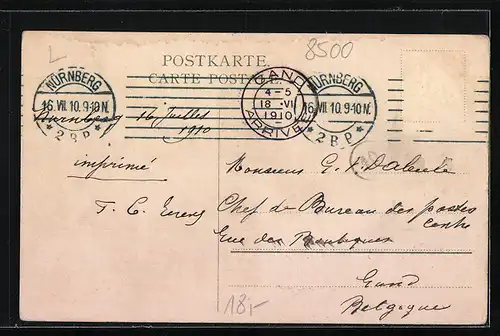 L
8500
POSTKARTE.
CARTE POSTALE
NÜRNBERG
16.VII.10.9-10N.
* 2 B.P. *
GAND
4-5
18 -VII
1910
ARRIVÉE
NÜRNBERG
16.VII.10.9-10N.
* 2 B.P. *
Nurnberg 16 Juillet
1910
imprimé
Monsieur G.
F. C.
Chef de Bureau des postes
Centre
Rue des Boutiques
Gand
Belgique
18,-